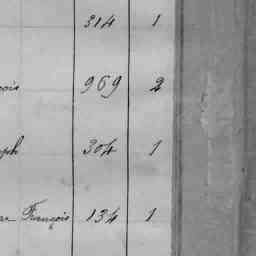 314 1
ois 969 2
seph 304 1
François 134 1